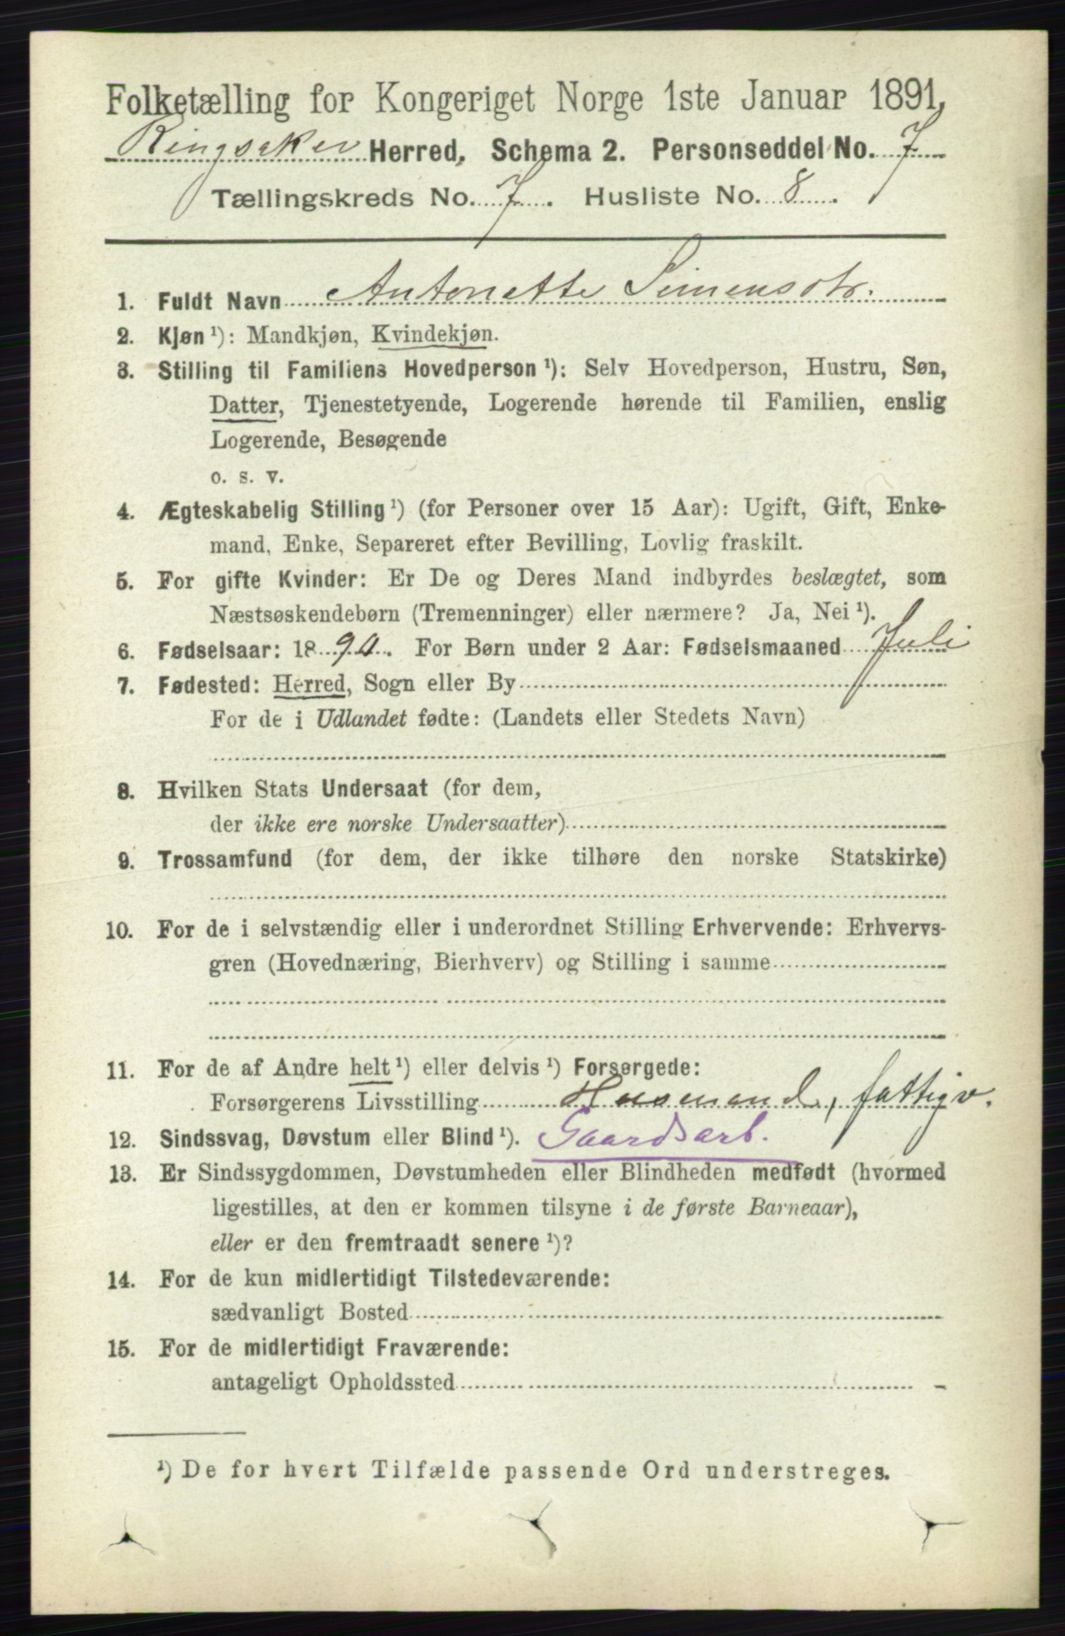 Folketælling for Kongeriget Norge 1ste Januar 1891.
Ringsaker Herred, Schema 2. Personseddel No. 7
Tællingskreds No. 7. Husliste No. 8.
1. Fuldt Navn Antonette Simensdtr.
2. Kjøn ¹): Mandkjøn, Kvindekjøn.
3. Stilling til Familiens Hovedperson ¹): Selv Hovedperson, Hustru, Søn,
Datter, Tjenestetyende, Logerende hørende til Familien, enslig
Logerende, Besøgende
o. s. v.
4. Ægteskabelig Stilling ¹) (for Personer over 15 Aar): Ugift, Gift, Enke-
mand, Enke, Separeret efter Bevilling, Lovlig fraskilt.
5. For gifte Kvinder: Er De og Deres Mand indbyrdes beslægtet, som
Næstsøskendebørn (Tremenninger) eller nærmere? Ja, Nei ¹).
6. Fødselsaar: 1890. For Børn under 2 Aar: Fødselsmaaned Juli
7. Fødested: Herred, Sogn eller By
For de i Udlandet fødte: (Landets eller Stedets Navn)
8. Hvilken Stats Undersaat (for dem,
der ikke ere norske Undersaatter)
9. Trossamfund (for dem, der ikke tilhøre den norske Statskirke)
10. For de i selvstændig eller i underordnet Stilling Erhvervende: Erhvervs-
gren (Hovednæring, Bierhverv) og Stilling i samme
11. For de af Andre helt ¹) eller delvis ¹) Forsørgede:
Forsørgerens Livsstilling Husmand, fattigv.
12. Sindssvag, Døvstum eller Blind ¹). Gaardsarb.
13. Er Sindssygdommen, Døvstumheden eller Blindheden medfødt (hvormed
ligestilles, at den er kommen tilsyne i de første Barneaar),
eller er den fremtraadt senere ¹)?
14. For de kun midlertidigt Tilstedeværende:
sædvanligt Bosted
15. For de midlertidigt Fraværende:
antageligt Opholdssted
¹) De for hvert Tilfælde passende Ord understreges.